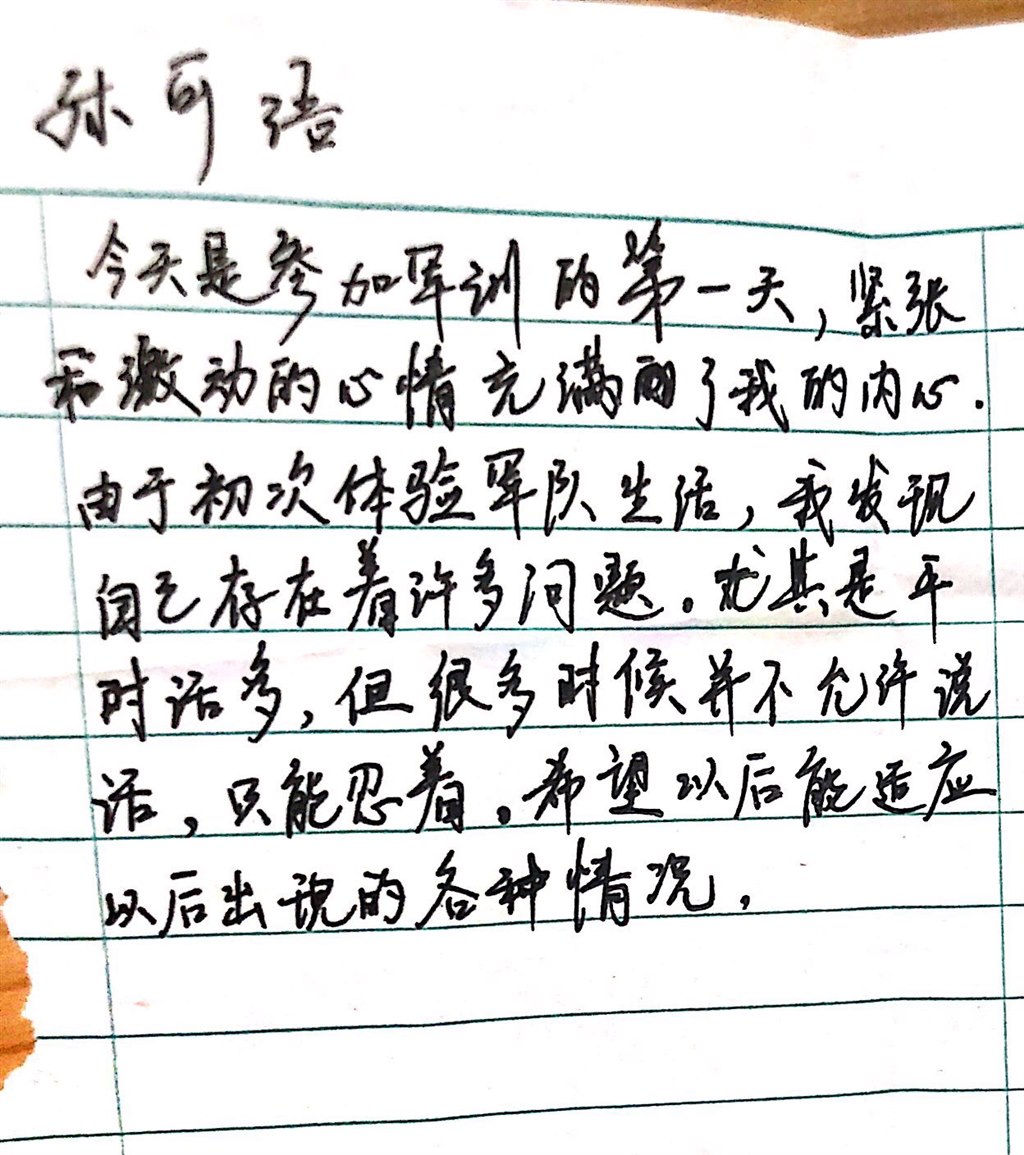 孙可语
今天是参加军训的第一天，紧张
和激动的心情充满了我的内心.
由于初次体验军队生活，我发现
自己存在着许多问题。尤其是平
时话多，但很多时候并不允许说
话，只能忍着。希望以后能适应
以后出现的各种情况，